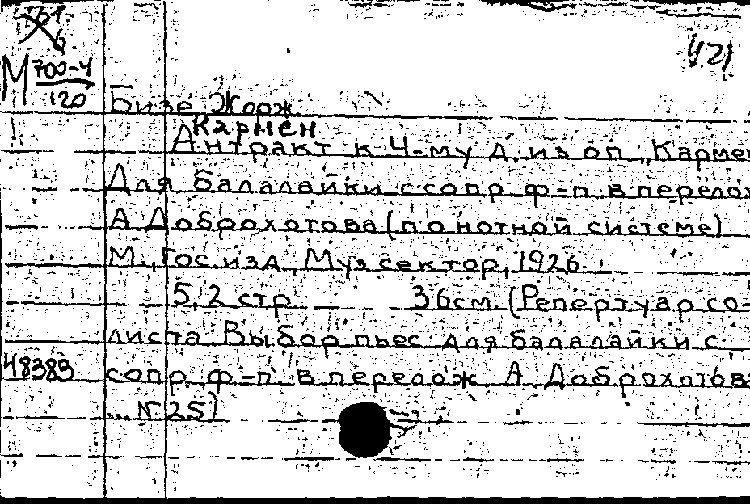 М 700-4
120
421
Бизе Жорж
Кармен
Антракт к 4-му д. из оп. „Кармен
Для балалайки с сопр. ф-п. в перелож
А. Доброхотова (по нотной системе)
М., Гос. изд., Муз. сектор, 1926.
5,2 стр. 36 см. (Репертуар со-
листа. Выбор. пьес для балалайки с
48383
сопр. ф-п. в перелож. А. Доброхотов
... № 25)